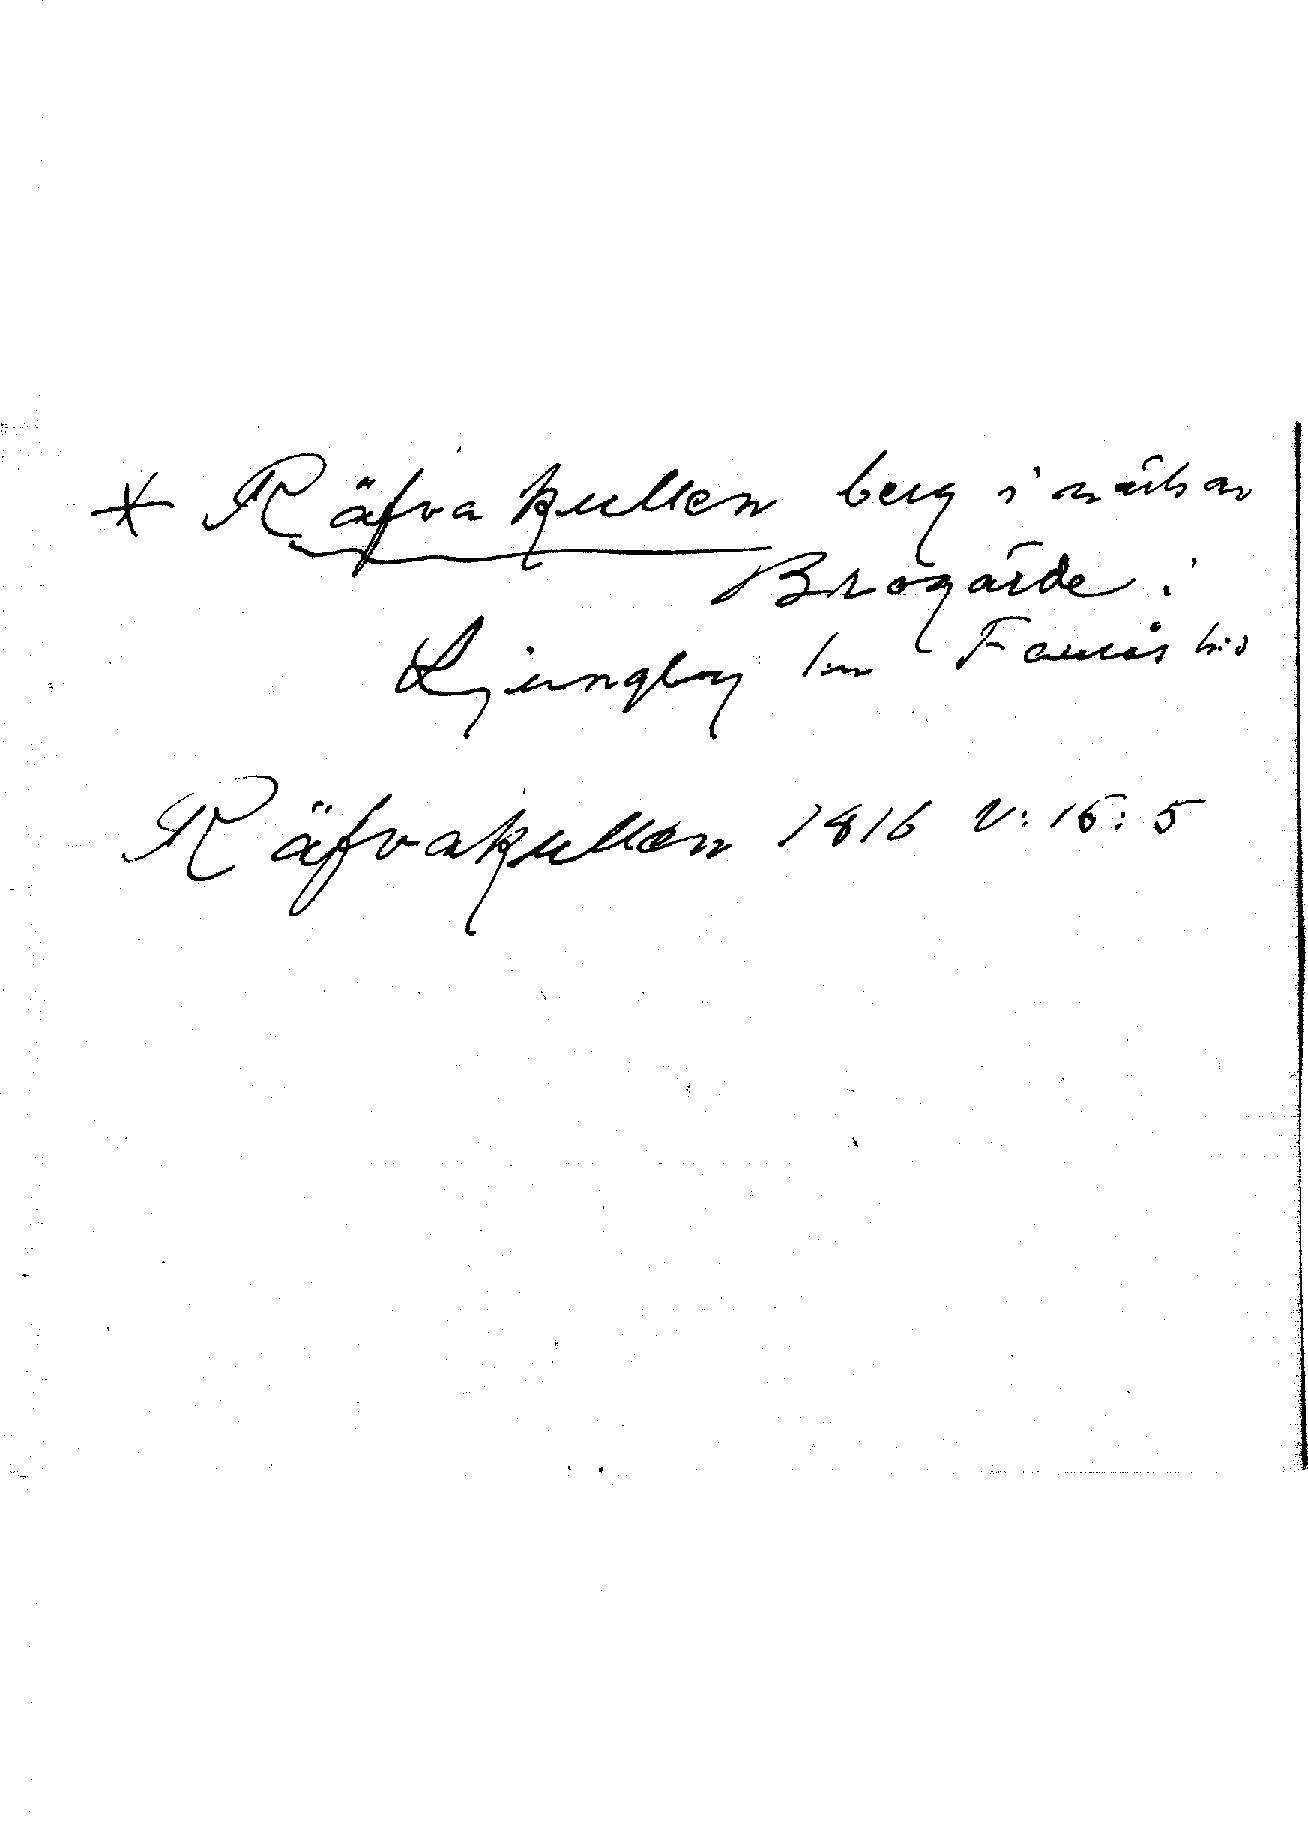 * Räfvakullen berg i närh av
Brogärde i
Ljungby sn Faurås hd
Räfvakullen 1816 V: 15: 5